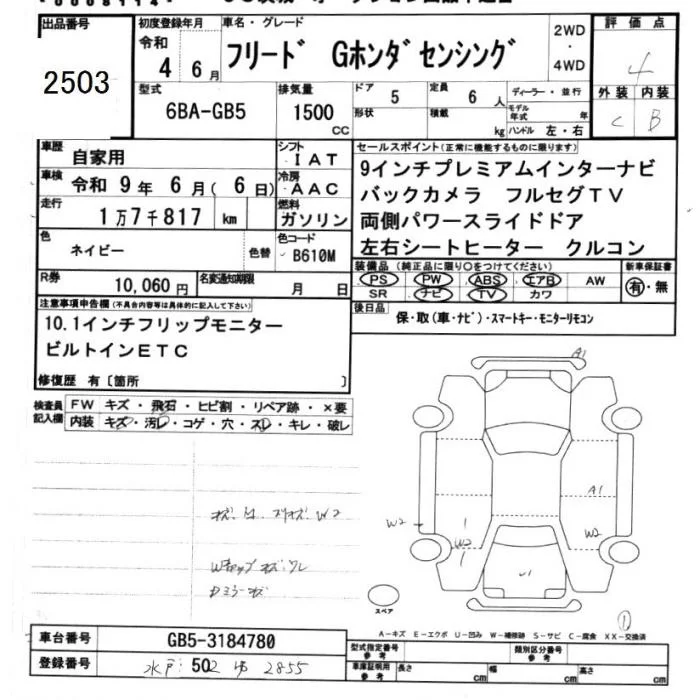 出品番号
2503
初度登録年月
令和
4 6月
車名・グレード
フリード Gホンダセンシング
2WD
・
4WD
評価点
4
外装 内装
C B
型式
6BA-GB5
排気量
1500
CC
ドア
5
形状
定員
6 人
積載
kg
ディーラー・並行
モデル年式 年
ハンドル 左・右
車歴
自家用
シフト
IAT
車検
令和 9年 6月(6日)
冷房
AAC
走行
1万7千817 km
燃料
ガソリン
色
ネイビー
色替
色コード
B610M
R券
10,060円
名変通知期限
月 日
セールスポイント(正常に機能するものに限ります)
9インチプレミアムインターナビ
バックカメラ フルセグTV
両側パワースライドドア
左右シートヒーター クルコン
装備品(純正品に限り○をつけてください)
PS PW ABS エアB AW
SR ナビ TV カワ
新車保証書
有・無
後日品
保・取(車・ナビ)・スマートキー・モニターリモコン
注意事項申告欄(不具合内容等は具体的に記入して下さい)
10.1インチフリップモニター
ビルトインETC
修復歴 有〔箇所 〕
検査員記入欄
FW キズ・飛石・ヒビ割・リペア跡・×要
内装 キズ・汚レ・コゲ・穴・スレ・キレ・破レ
A1
A1
W2
W2
W2
スペア
1
A-キズ E-エクボ U-凹み W-補修跡 S-サビ C-腐食 XX-交換済
車台番号
GB5-3184780
登録番号
水戸 502 ゆ 2855
型式指定番号
参考
類別区分番号
参考
車庫証明用
参考
長さ cm
幅 cm
高さ cm